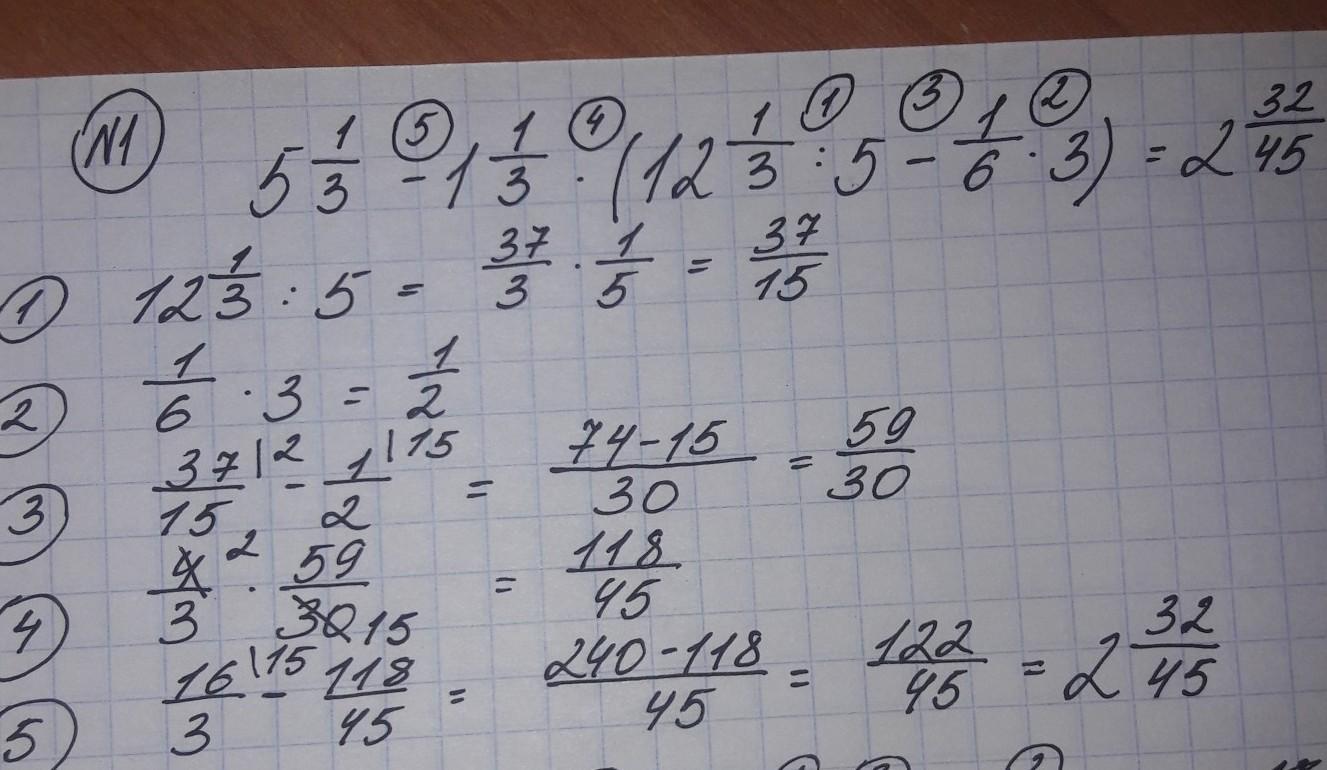 №1 5 1/3 - 1 1/3 · (12 1/3 : 5 - 1/6 · 3) = 2 32/45
⑤ ④ ① ③ ②
① 12 1/3 : 5 = 37/3 · 1/5 = 37/15
② 1/6 · 3 = 1/2
③ 37/15 \2 - 1/2 \15 = (74-15)/30 = 59/30
④ 4/3 2 · 59/30 15 = 118/45
⑤ 16/3 \15 - 118/45 = (240-118)/45 = 122/45 = 2 32/45